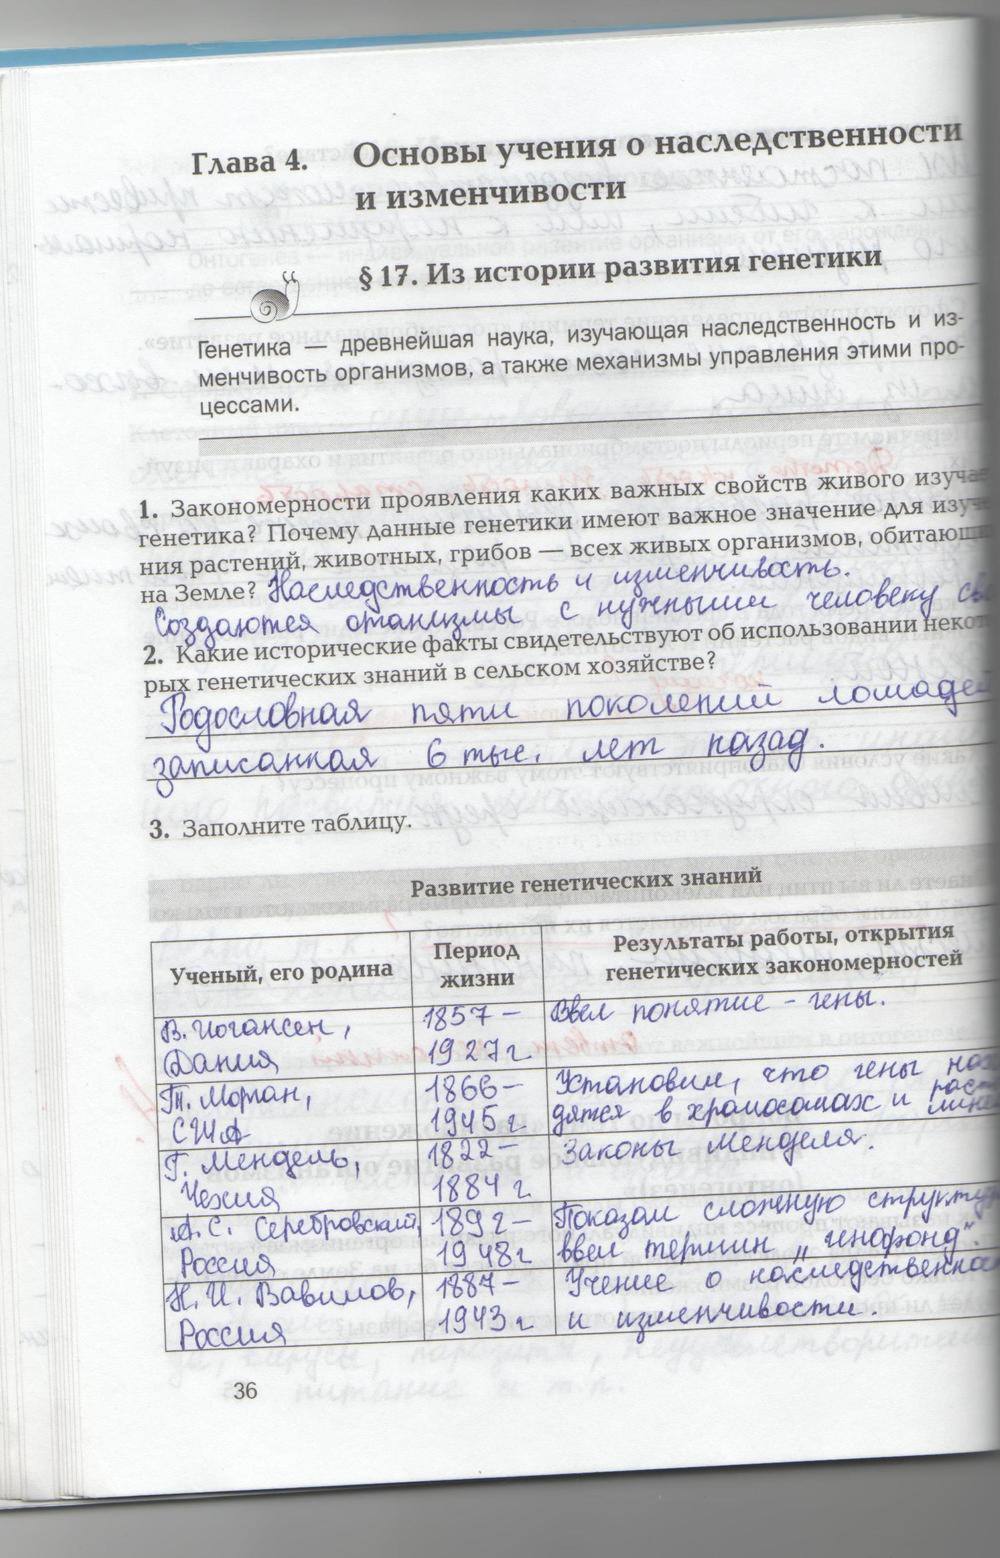 Глава 4. Основы учения о наследственности
и изменчивости
§ 17. Из истории развития генетики
Генетика — древнейшая наука, изучающая наследственность и из-
менчивость организмов, а также механизмы управления этими про-
цессами.
1. Закономерности проявления каких важных свойств живого изучае
генетика? Почему данные генетики имеют важное значение для изуче
ния растений, животных, грибов — всех живых организмов, обитающи
на Земле? Наследственность и изменчивость.
Создаются отанизмы с нужными человеку сво
2. Какие исторические факты свидетельствуют об использовании некот
рых генетических знаний в сельском хозяйстве?
Родословная пяти поколений лошадей
записанная 6 тыс. лет назад.
3. Заполните таблицу.
Развитие генетических знаний
Ученый, его родина Период жизни Результаты работы, открытия генетических закономерностей
В. Иогансен, 1857– Ввел понятие – гены.
Дания 1927 г.
Т. Морган, 1866– Установил, что гены нахо
США 1945 г. дятся в хромосомах и расп лине
Г. Мендель, 1822– Законы Менделя.
Чехия 1884 г.
А. С. Серебровский, 1892– Показал сложную структур
Россия 1948 г ввел термин „генофонд".
Н. И. Вавилов, 1887– Учение о наследственнос
Россия 1943 г. и изменчивости.
36